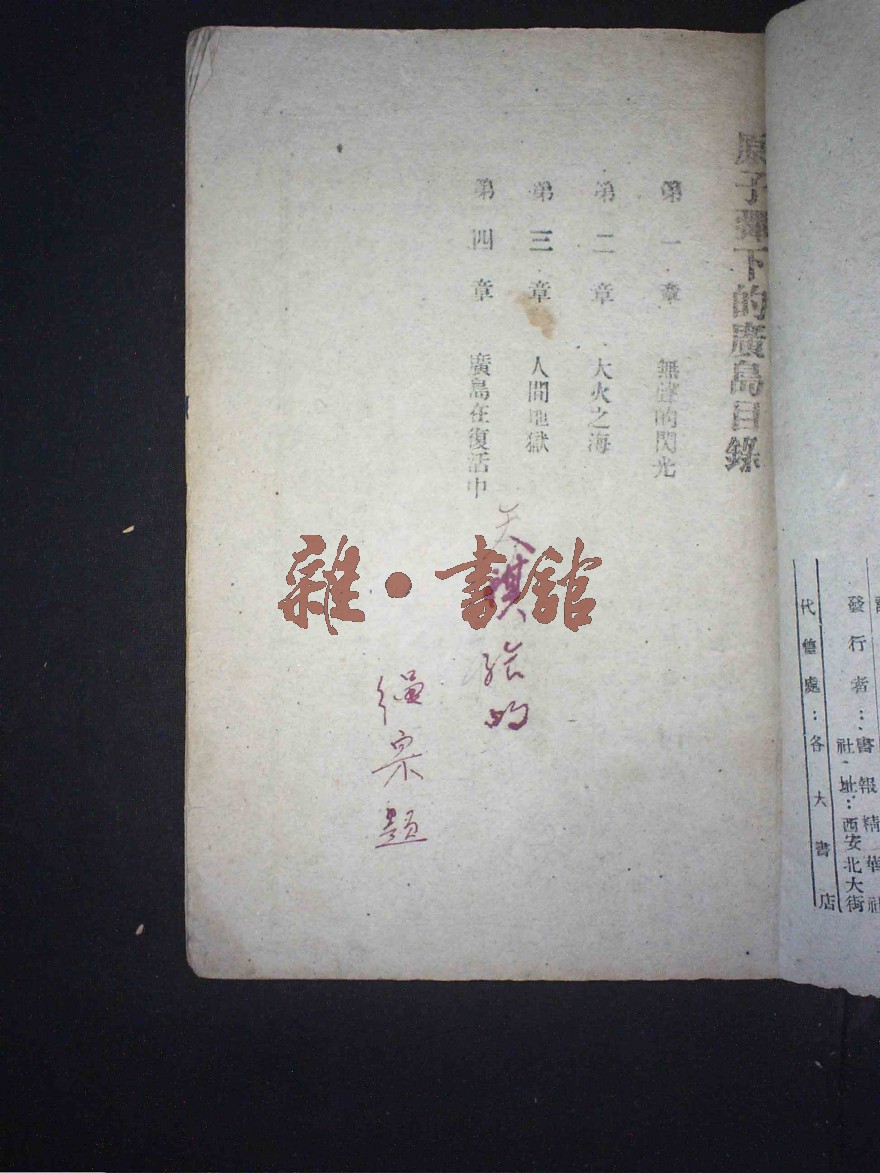 原子彈下的廣島目錄
第一章 無聲的閃光
第二章 大火之海
第三章 人間地獄
第四章 廣島在復活中
天 的
題
雜·書舘
發行者：書報精華社
社址：西安北大街
代售處：各大書店